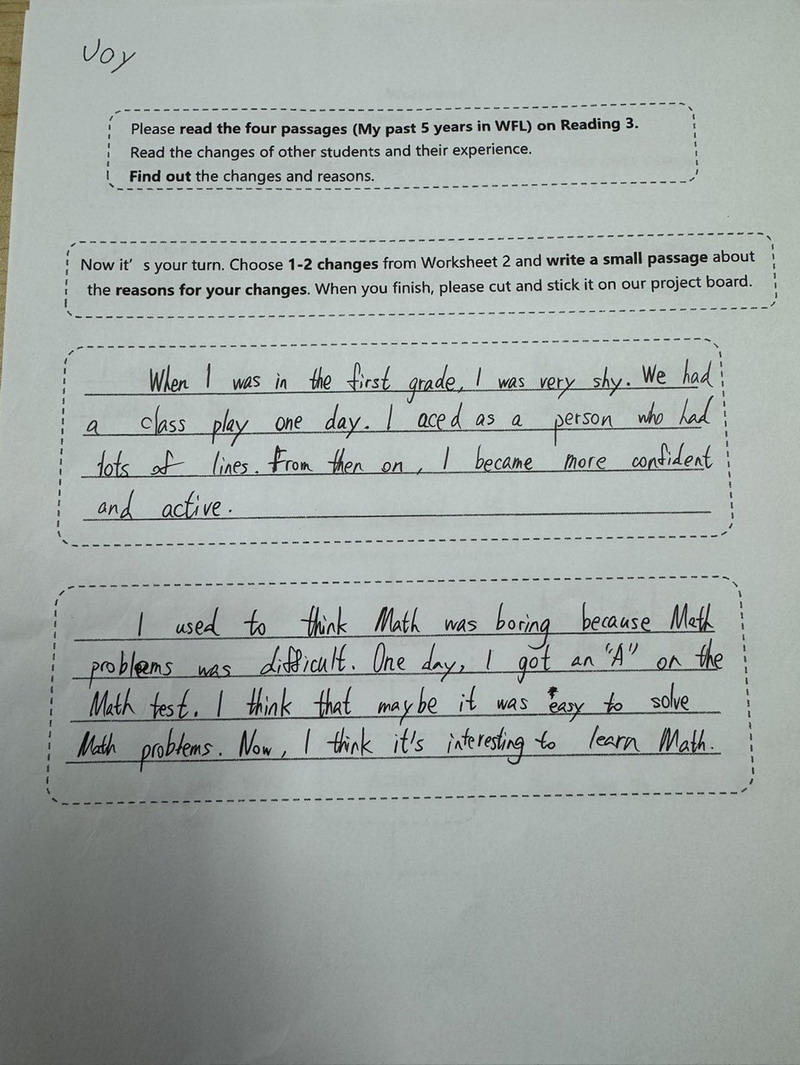 Joy
Please read the four passages (My past 5 years in WFL) on Reading 3.
Read the changes of other students and their experience.
Find out the changes and reasons.
Now it's your turn. Choose 1-2 changes from Worksheet 2 and write a small passage about
the reasons for your changes. When you finish, please cut and stick it on our project board.
When I was in the first grade, I was very shy. We had
a class play one day. I aced as a person who had
lots of lines. From then on, I became more confident
and active.
I used to think Math was boring because Math
problems was difficult. One day, I got an "A" on the
Math test. I think that maybe it was easy to solve
Math problems. Now, I think it's interesting to learn Math.